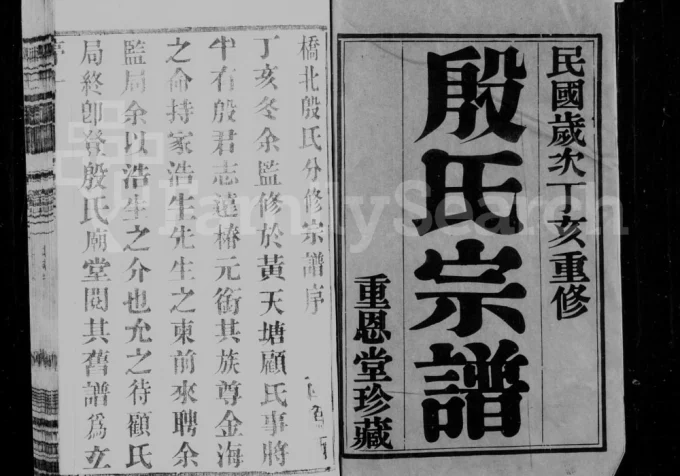 民國歲次丁亥重修
殷氏宗譜
重恩堂珍藏
橋北殷氏分修宗譜序
丁亥冬余監修於黃天塘顧氏事將
中有殷君志遠椿元銜其族尊金海
之命持家浩生先生之柬前來聘余
監局余以浩生之介也允之待顧氏
局終卽登殷氏廟堂閱其舊譜爲立
序一
FamilySearch